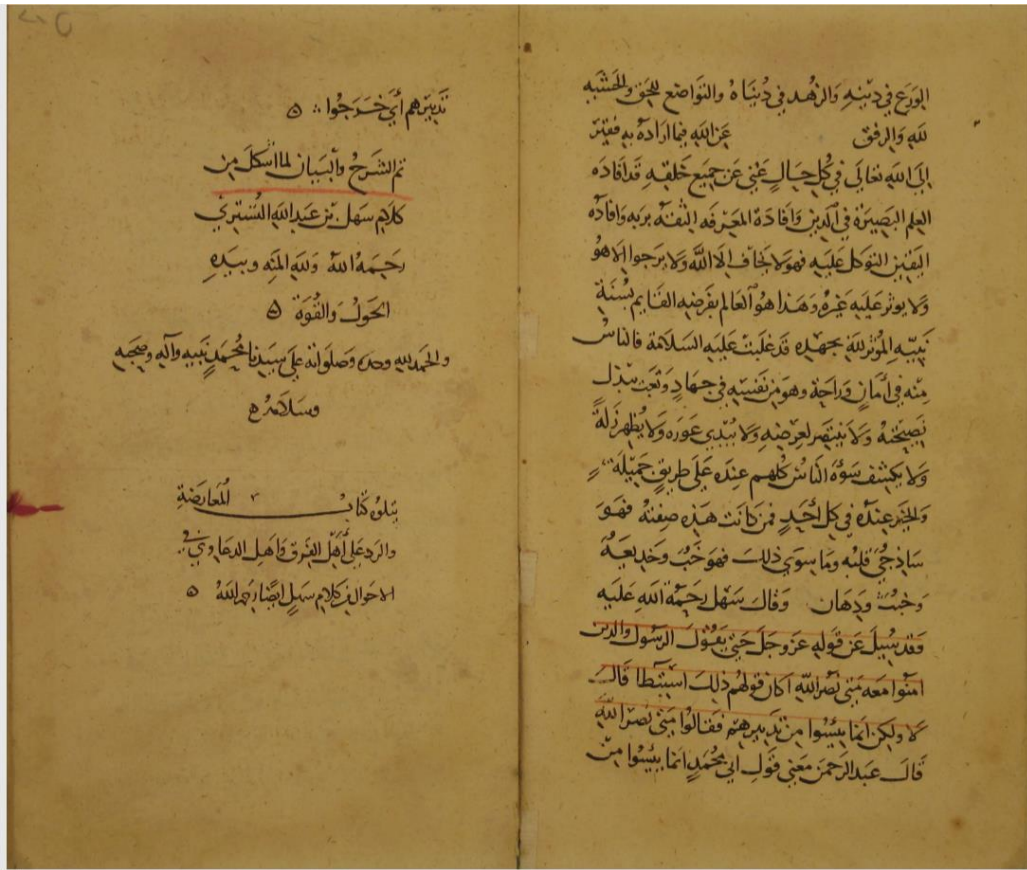 الورع في دينه والزهد في دنياه والتواضع للحق والخشيه
لله والرفق عن الله فيما اراده به فقير
إلى الله تعالى في كل حال غني عن جميع خلقه قد افاده
العلم البصيرة في الدين وافاده المعرفه الثقة بربه وافاده
اليقين التوكل عليه فهو لا يخاف الا الله ولا يرجوا الا هو
ولا يوثر عليه غيره وهذا هو العالم بفرضه القايم بسنة
نبيه الموثر لله بجهده قد غلبت عليه السلامة فالناس
منه في أمان وراحة وهو من نفسه في جهاد وتعب يبذل
نصيحته ولا ينتصر لعرضه ولا يبدي عوره ولا يظهر زلة
ولا يكشف سوءة الناس كلهم عنده على طريق جميلة
والخير عنده في كل أحد فمن كانت هذه صفته فهو
ساذجي قلبه وما سوى ذلك فهو خب وخديعة
وخبث ودهان وقال سهل رحمة الله عليه
وقد سيل عن قوله عز وجل حتى يقول الرسول والذين
امنوا معه متى نصر الله اكان قولهم ذلك استبطا قال
لا ولكن انما يئسوا من تدبيرهم فقالوا متى نصر الله
قال عبد الرحمن معنى قول ابي محمد انما يئسوا من
تدبيرهم أي خرجوا ه
تم الشرح والبيان لما اشكل من
كلام سهل بن عبد الله التستري
رحمه الله ولله المنه وبيده
الحول والقوة ه
والحمد لله وحده وصلواته على سيدنا محمد نبيه وآله وصحبه
وسلامه
يتلوه كتاب المعارضة
والرد على أهل الفرق واهل الدعاوي في
الاحوال من كلام سهل ايضا رحمه الله ه